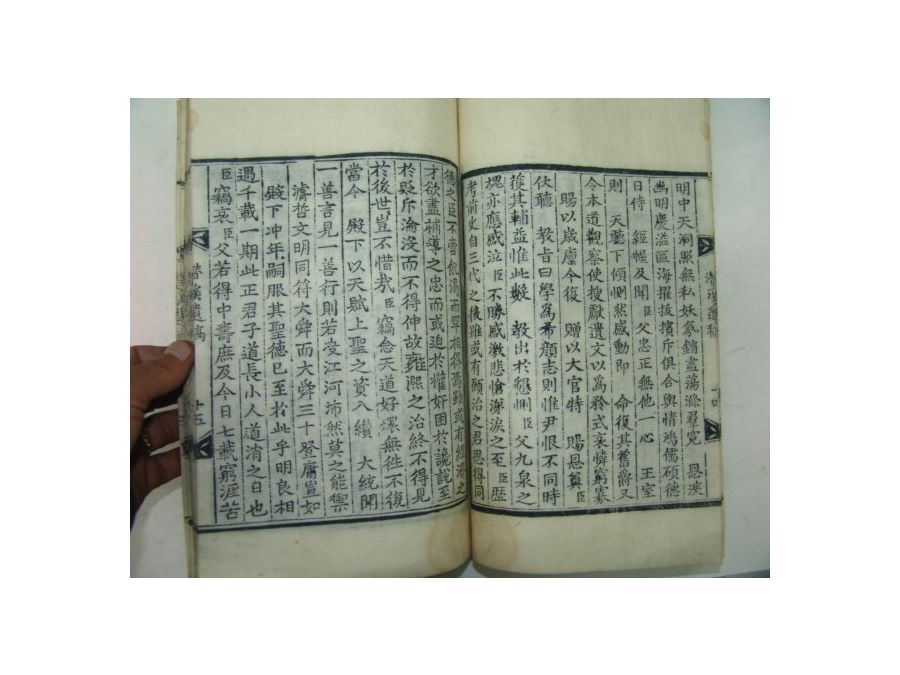 明中天洞照無私妖氛銷盡蕩滌羣寃 恩浹
幽明慶溢區海擢拔擯斥俱合輿情鴻儒碩德
日侍 經幄及聞 臣父忠正無他一心 王室
則 天聽下傾惻然感動即 命復其舊爵又
令本道觀察使搜獻遺文以爲矜式哀憐窮寡
賜以歲廩今復 贈以大官特 賜恩賁臣
伏聽 敎旨曰學爲希顔志則惟尹恨不同時
獲其輔益惟此數 敎出於懇惻臣父九泉之
魂亦應感泣臣不勝感激悲愴漈淚之至臣歷
考前史自三代之後雖或有願治之君思得同
德之臣不啻飢渴而罕相得焉雖或有經濟之
才欲盡補導之忠而或迫於權奸困於讒說至
於貶斥淪沒而不得伸故雍熙之治終不得見
於後世豈不惜哉臣竊念天道好還無徃不復
當今 殿下以天賦上聖之資入纉 大統聞
一善言見一善行則若受江河沛然莫之能禦
濬哲文明同符大舜而大舜三十登庸豈如
殿下冲年嗣服其聖德已至於此乎明良相
遇千載一期此正君子道長小人道消之日也
臣竊哀臣父若得中壽庶及今日七載窮涯苦
潛溪遺稿
十四
潛溪遺稿
十五